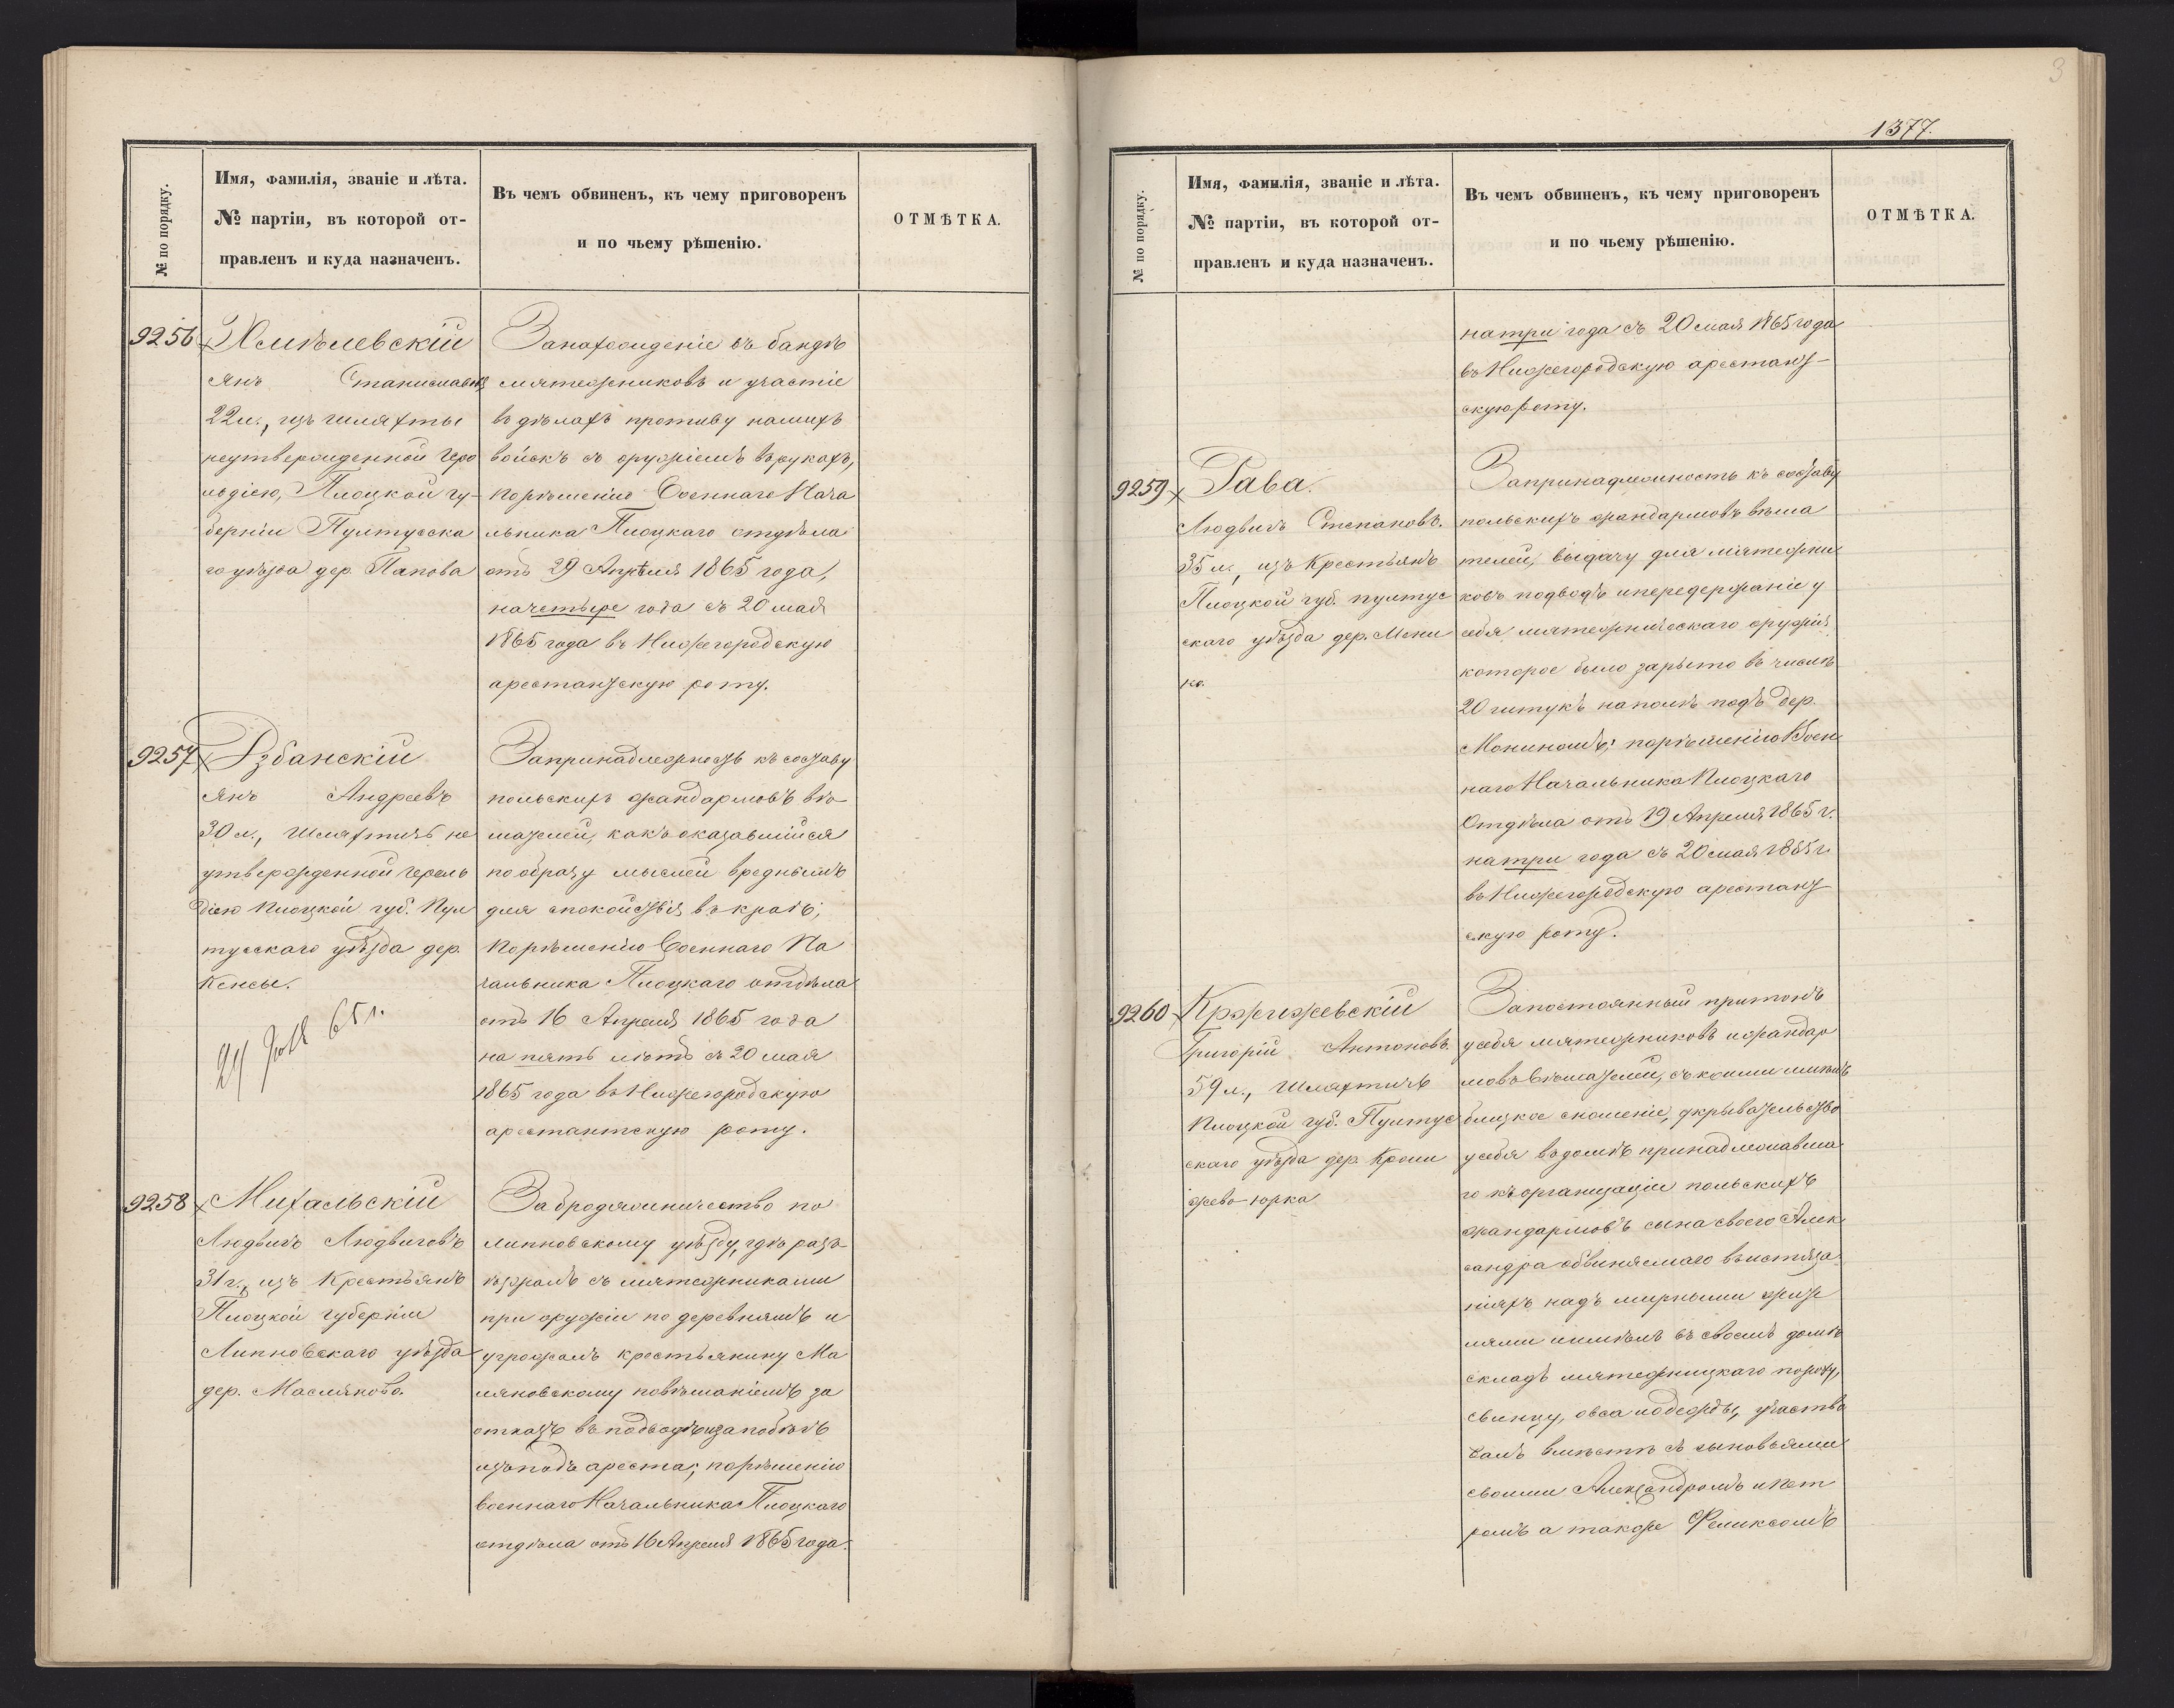 № по порядку.
Имя, фамилія, званіе и лѣта.
№ партіи, въ которой от-
правленъ и куда назначенъ.
Въ чемъ обвиненъ, къ чему приговоренъ
и по чьему рѣшенію.
ОТМѢТКА.
9256
Хмѣлевскій
Янъ Станиславовъ
22 л., изъ шляхты
неутвержденной Геро
льдіею, Плоцкой гу-
берніи Пултусска
го уѣзда дер. Папова
За нахожденіе въ бандѣ
мятежниковъ и участіе
въ дѣлахъ противу нашихъ
войскъ съ оружіемъ въ рукахъ,
по рѣшенію Военнаго Нача
льника Плоцкаго отдѣла
отъ 29 Апрѣля 1865 года,
на четыре года съ 20 мая
1865 года въ Нижегородскую
арестантскую роту.
9257
Рзбанскій
Янъ Андреевъ
30 л., Шляхтичъ не
утвержденной Героль
діею Плоцкой губ. Пул
тусскаго уѣзда дер.
Кенсы.
65 г.
За принадлежность къ составу
польскихъ жандармовъ вѣ-
шателей, какъ оказавшійся
по образу мыслей вреднымъ
для спокойствія въ краѣ;
По рѣшенію Военнаго На
чальника Плоцкаго отдѣла
отъ 16 Апреля 1865 года
на пять лѣтъ съ 20 мая
1865 года въ Нижегородскую
арестантскую роту.
9258
Михальскій
Людвигъ Людвиговъ
31 г., изъ Крестьянъ
Плоцкой губерніи
Липновскаго уѣзда
дер. Масляково.
За бродяжничество по
липновскому уѣзду, гдѣ разъ-
ѣзжалъ съ мятежниками
при оружіи по деревнямъ и
угрожалъ крестьянину Ма
ляновскому повѣшаніемъ за
отказъ въ подводѣ и за побѣгъ
изъ подъ ареста; по рѣшенію
военнаго Начальника Плоцкаго
отдѣла отъ 16 Апреля 1865 года.
3
1377.
№ по порядку.
Имя, фамилія, званіе и лѣта.
№ партіи, въ которой от-
правленъ и куда назначенъ.
Въ чемъ обвиненъ, къ чему приговоренъ
и по чьему рѣшенію.
ОТМѢТКА.
на три года съ 20 мая 1865 года
въ Нижегородскую арестант-
скую роту.
9259
Рава.
Людвигъ Степановъ.
35 л., изъ Крестьянъ
Плоцкой губ. пултус
скаго уѣзда дер. Мени
ко.
За принадлежность къ составу
польскихъ жандармовъ вѣша
телей, выдачу для мятежни
ковъ подводъ и передержаніе у
себя мятежническаго оружія
которое было зарыто въ числѣ
20 штукъ на полѣ подъ дер.
Мониномъ; по рѣшенію Воен
наго Начальника Плоцкаго
Отдѣла отъ 19 Апреля 1865 г.
на три года съ 20 мая 1865 г.
въ Нижегородскую арестант
скую роту.
9260
Кржижевскій
Григорій Антоновъ.
59 л., Шляхтичъ
Плоцкой губ. Пултус
скаго уѣзда дер. Кроши
жево-юрка
За постоянный притонъ
у себя мятежниковъ и жандар
мовъ вѣшателей, съ коими имѣлъ
близкое сношеніе, укрывательство
у себя въ домѣ принадлежавша
го къ организаціи польскихъ
жандармовъ сына своего Алек
сандра обвиняемаго въ истяза
ніяхъ надъ мирными жите
лями имѣлъ въ своемъ домѣ
складъ мятежницкаго пороху,
свинцу, овса и одежды, участво
валъ вмѣстѣ съ сыновьями
своими Александромъ и Пет
ромъ а также Феликсомъ